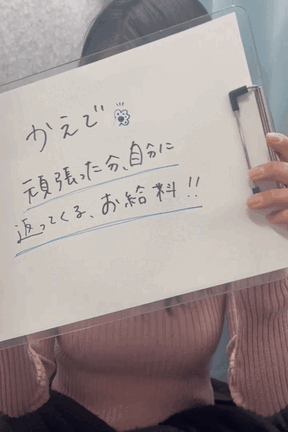 かえで
頑張った分、自分に
返ってくる、お給料!!